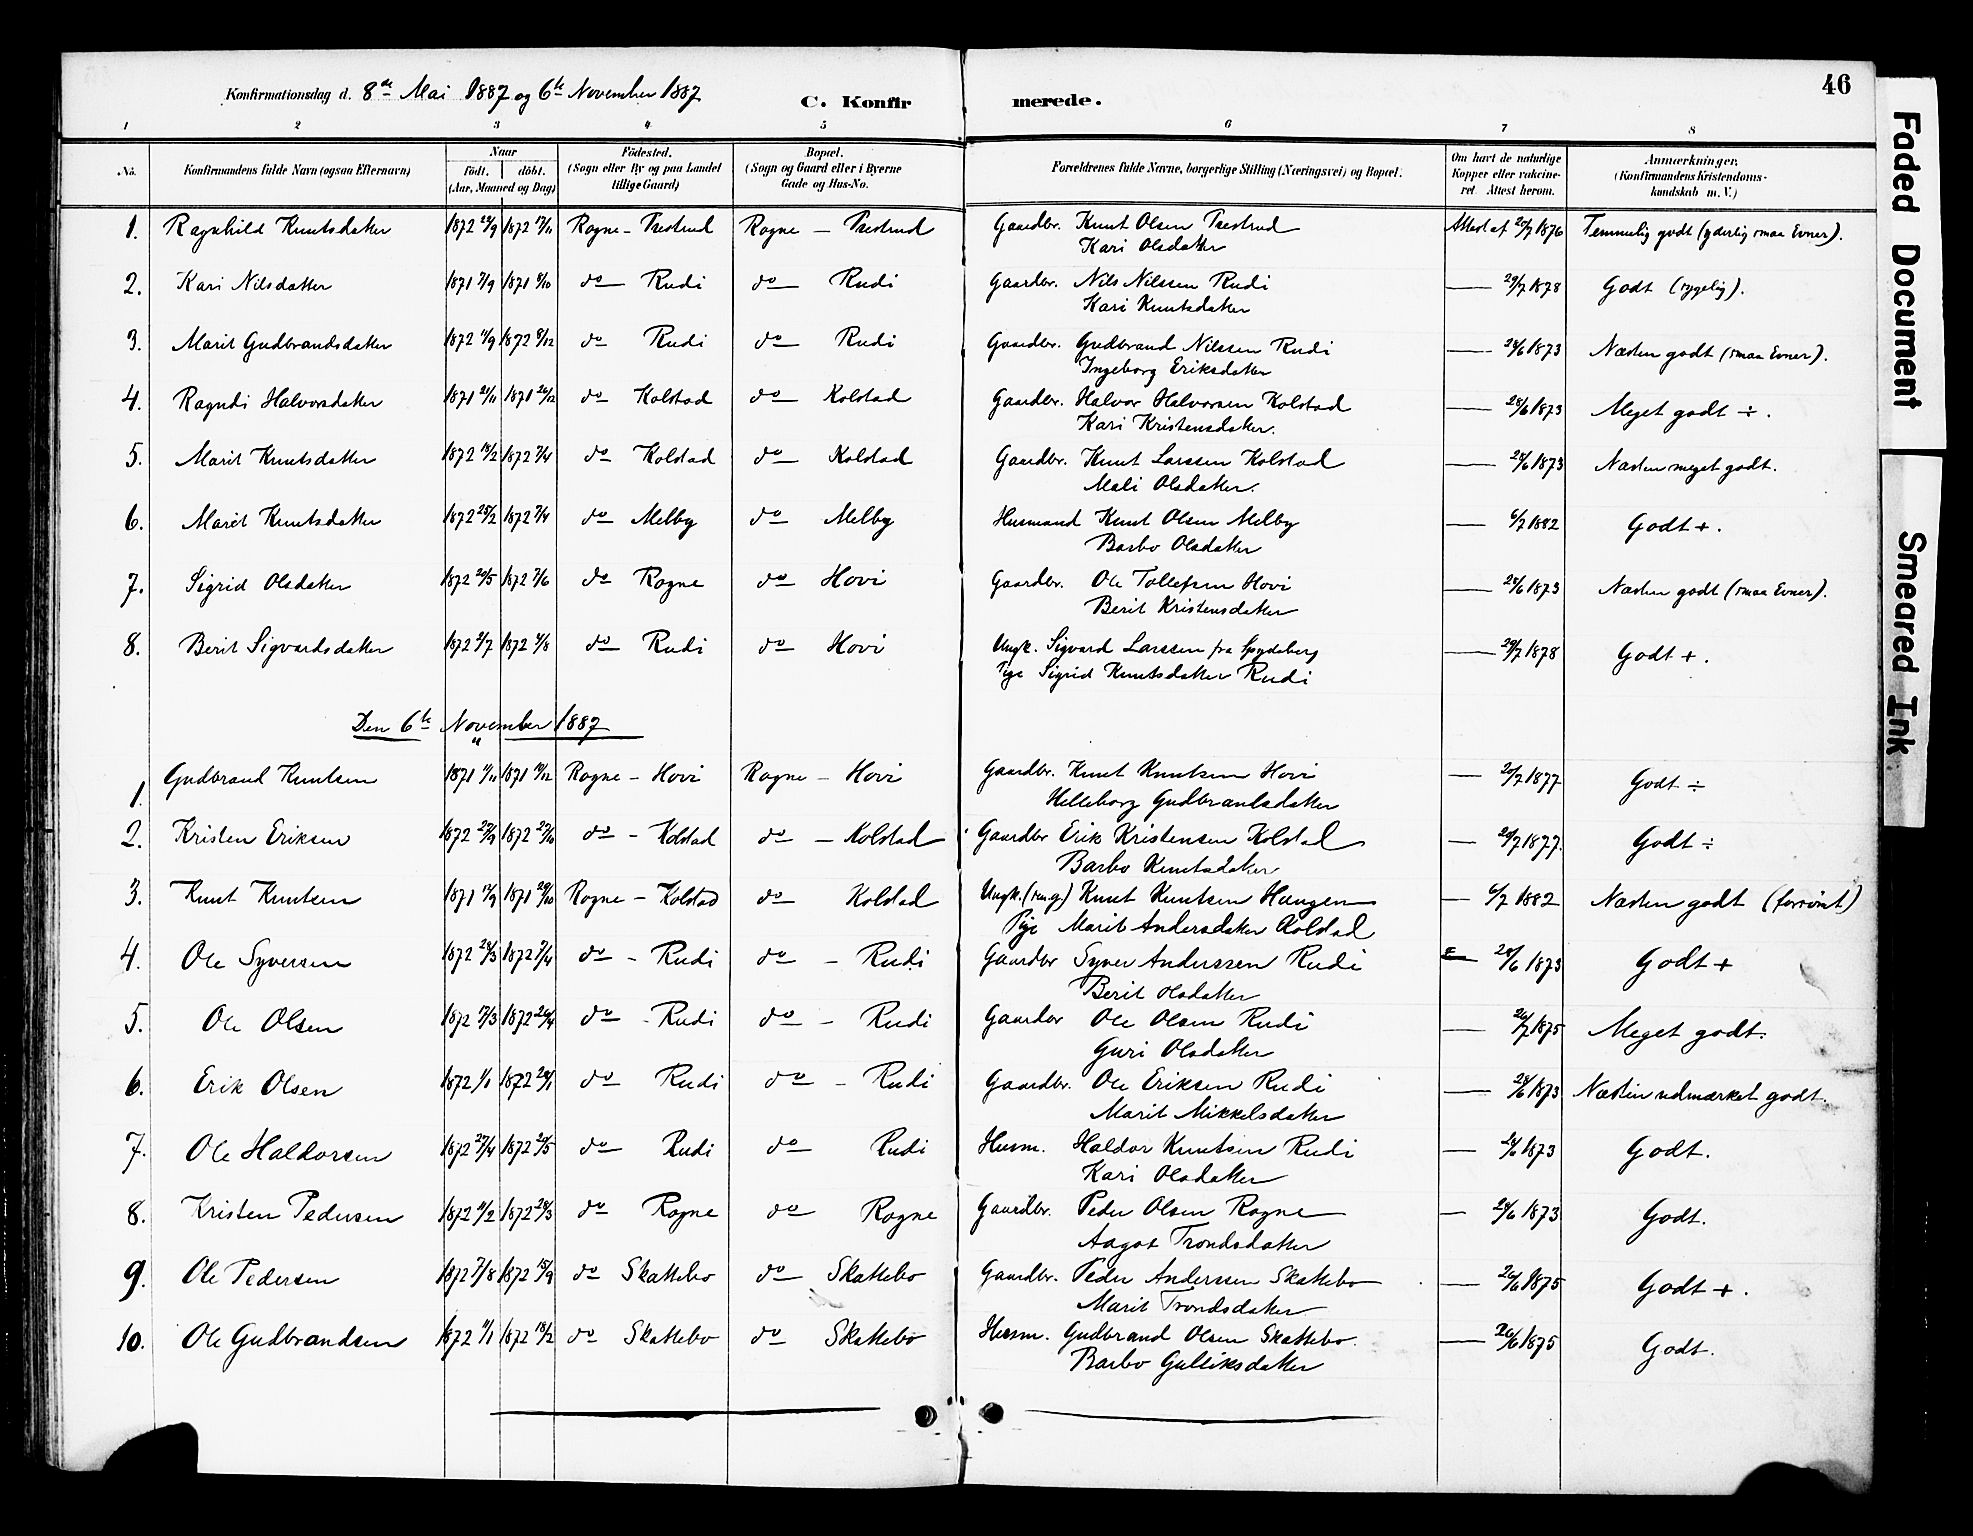 46
Konfirmationsdag d. 8de Mai 1887 og 6te November 1887
C. Konfirmerede.
1 2 3 4 5 6 7 8
No. Konfirmandens fulde Navn (ogsaa Efternavn) Naar født. døbt. (Aar, Maaned og Dag) Fødested. (Sogn eller By og paa Landet tillige Gaard) Bopæl. (Sogn og Gaard eller i Byerne Gade og Hus-No. Forældrenes fulde Navne, borgerlige Stilling (Næringsvei) og Bopæl. Om havt de naturlige Kopper eller vakcineret. Attest herom. Anmærkninger. (Konfirmandens Kristendomskundskab m. V.)
1. Ragnhild Knutsdatter 1872 1872 17/11 Rogne - Prestrud Rogne - Prestrud Gaardbr. Knut Olsen Prestrud Attest af 20/7 1876 Temmelig godt (yderlig smaa Evner).
Kari Olsdatter
2. Kari Nilsdatter 1871 7/9 1871 8/10 do Rudi do Rudi Gaardbr. Nils Nilssen Rudi — 29/7 1878 Godt (sygelig).
Kari Knutsdatter
3. Marit Gudbrandsdatter 1872 11/9 1872 8/12 do Rudi do Rudi Gaardbr. Gudbrand Nilssen Rudi — 24/6 1873 Næsten godt (smaa Evner).
Ingeborg Eriksdatter
4. Ragndi Halvorsdatter 1871 21/11 1871 26/12 do Kolstad do Kolstad Gaardbr. Halvor Halvorsen Kolstad — 28/6 1873 Meget godt ÷.
Kari Kristensdatter.
5. Marit Knutsdatter 1872 18/2 1872 7/4 do Kolstad do Kolstad Gaardbr. Knut Larssen Kolstad — 28/6 1873 Næsten meget godt.
Mali Olsdatter.
6. Marit Knutsdatter 1872 25/2 1872 7/4 do Melby do Melby Husmand Knut Olsen Melby — 6/7 1882 Godt +.
Barbo Olsdatter
7. Sigrid Olsdatter 1872 20/5 1872 7/6 do Rogne do Hovi Gaardbr. Ole Tollefsen Hovi — 24/6 1873 Næsten godt (smaa Evner).
Berit Kristensdatter
8. Berit Sigvardsdatter 1872 2/7 1872 4/8 do Rudi do Hovi Ungk. Sigvard Larssen fra Spydeberg — 29/7 1878 Godt +.
Pige Sigrid Knutsdatter Rudi
Den 6te November 1887
1. Gudbrand Knutsen 1871 11/11 1871 10/12 Rogne - Hovi Rogne - Hovi Gaardbr. Knut Knutsen Hovi — 20/7 1877 Godt ÷
Helleborg Gudbrandsdatter
2. Kristen Eriksen 1872 22/9 1872 27/10 do - Kolstad do - Kolstad Gaardbr Erik Kristensen Kolstad — 20/7 1877. Godt ÷
Barbo Knutsdatter
3. Knut Knutsen 1871 17/9 1871 29/10 Rogne - Kolstad do Kolstad Ungk. (ung) Knut Knutsen Haugen — 6/7 1882 Næsten godt (forsømt)
Pige Marit Andersdatter Kolstad
4. Ole Syversen 1872 24/3 1872 7/4 do - Rudi do - Rudi Gaardbr Syver Anderssen Rudi — 28/6 1873 Godt +
Berit Olsdatter
5. Ole Olsen 1872 17/3 1872 26/4 do - Rudi do - Rudi Gaardbr Ole Olsen Rudi — 26/7 1875 Meget godt.
Guri Olsdatter
6. Erik Olsen 1872 1/1 1872 28/1 do Rudi do - Rudi Gaardbr. Ole Eriksen Rudi — 24/6 1873 Næsten udmærket godt.
Marit Mikkelsdatter
7. Ole Haldorsen 1872 27/4 1872 26/5 do Rudi do Rudi Husm. Haldor Knutsen Rudi — 24/6 1873 Godt.
Kari Olsdatter
8. Kristen Pedersen 1872 11/2 1872 24/3 do Rogne do Rogne Gaardbr. Peder Olsen Rogne — 24/6 1873 Godt.
Aagot Trondsdatter
9. Ole Pedersen 1872 7/8 1872 15/9 do Skattebo do Skattebo Gaardbr. Peder Anderssen Skattebo — 26/6 1875 Godt +.
Marit Trondsdatter
10. Ole Gudbrandsen 1872 11/1 1872 18/2 do Skattebo do Skattebo Husm. Gudbrand Olsen Skattebo. — 26/6 1875 Godt.
Barbo Gulliksdatter
Faded Document
Smeared Ink